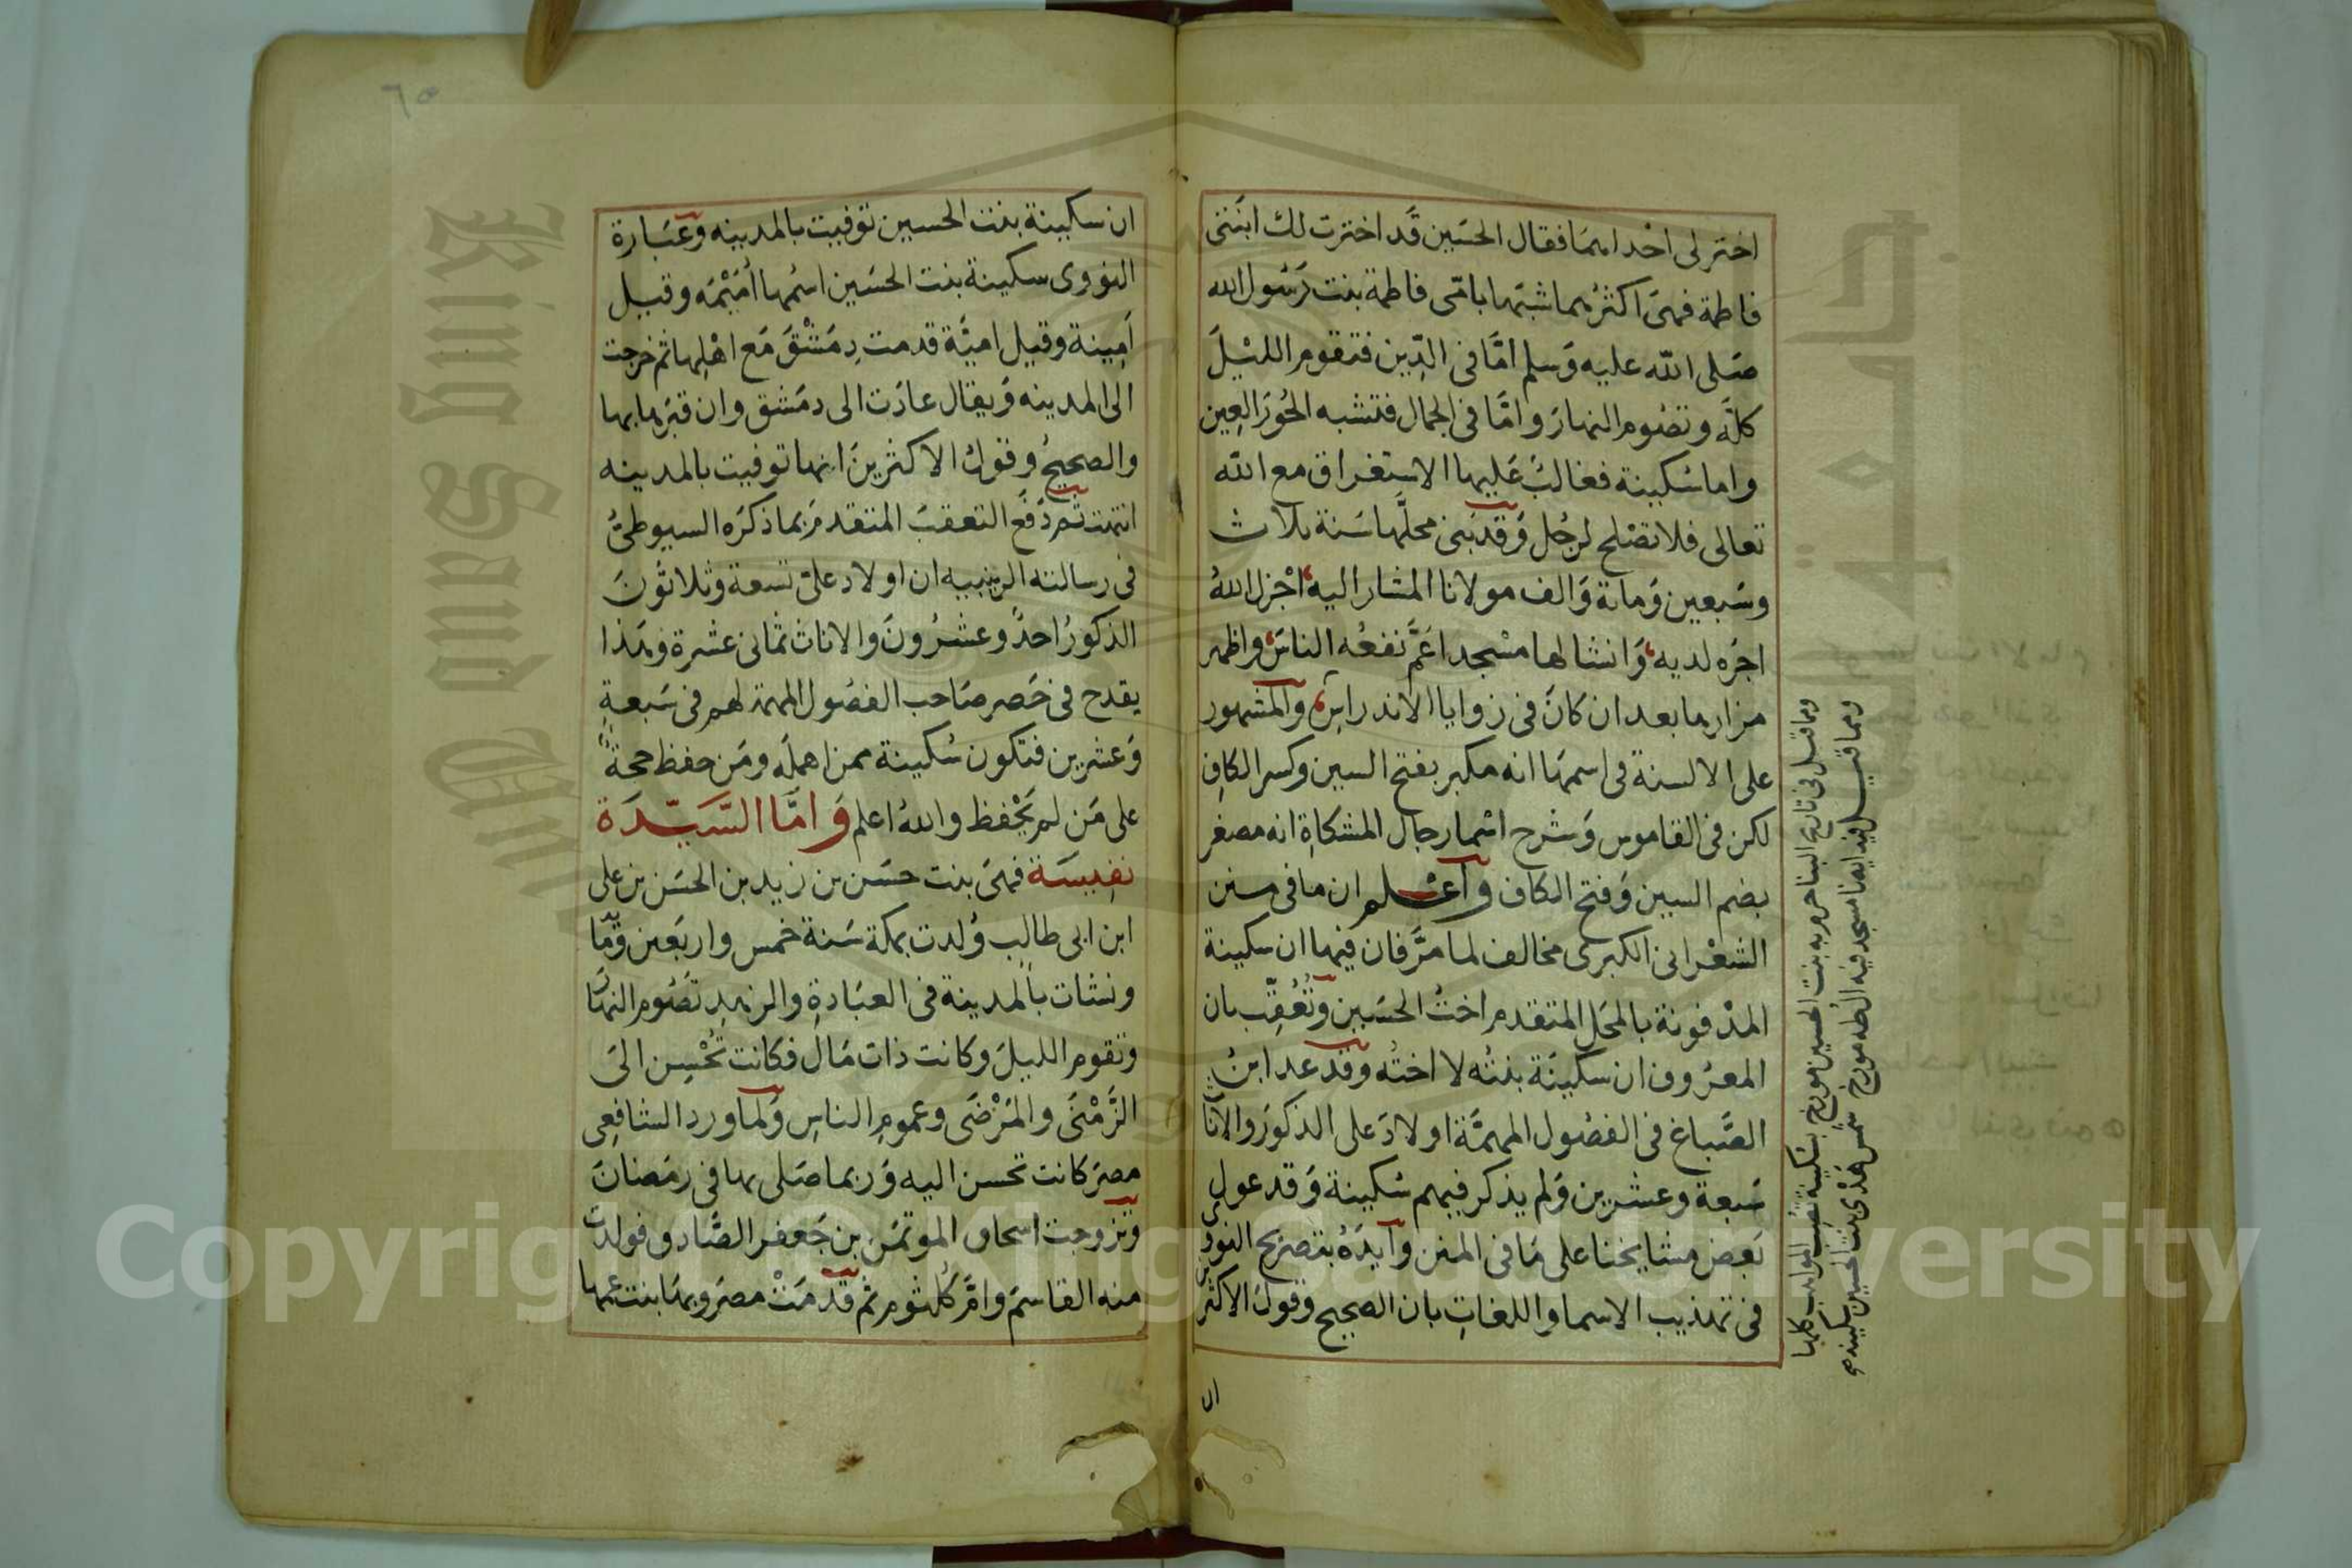 اختر لى احداهما فقال الحسين قد اخترت لك ابنتى
فاطمة فهى اكثرهما شبها بامى فاطمة بنت رسول الله
صلى الله عليه وسلم اما فى الدين فتقوم الليل
كله وتصوم النهار واما فى الجمال فتشبه الحور العين
واما سكينة فغالب عليها الاستغراق مع الله
تعالى فلا تصلح لرجل وقد بنى محلها سنة ثلاث
وسبعين وماىة والف مولانا المشار اليه اجزل الله
اجره لديه وانشا لها مسجدا عم نفعه الناس واظهر
مزارها بعد ان كان فى زوايا الاندراس والمشهور
على الالسنة فى اسمها انه مكبر بفتح السين وكسر الكاف
لكن فى القاموس وشرح اسما رجال المشكاة انه مصغر
بضم السين وفتح الكاف واعلم ان ما فى منن
الشعرانى الكبرى مخالف لما مر فان فيها ان سكينة
المدفونة بالمحل المتقدم اخت الحسين وتعقب بان
المعروف ان سكينة بنته لا اخته وقد عد ابن
الصباغ فى الفصول المهمة اولاد على الذكور والاناث
سبعة وعشرين ولم يذكر فيهم سكينة وقد عول
بعض مشايخنا على ما فى المنن وايده بتصريح النووى
فى تهذيب الاسما واللغات بان الصحيح وقول الاكثرين
ان
ومما قيل فى تاريخ
بنت الحسين مورخ
ومما قيل فيه ايضا مسجد فيه
مورخ شمس هدى بنت الحسين سكينة
٦٥
ان سكينة بنت الحسين توفيت بالمدينه وعبارة
النووى سكينة بنت الحسين اسمها اميمه وقيل
امينة وقيل امية قدمت دمشق مع اهلها ثم خرجت
الى المدينه ويقال عادت الى دمشق وان قبرها بها
والصحيح وقول الاكثرين انها توفيت بالمدينه
انتهت ثم دفع التعقب المتقدم بما ذكره السيوطى
فى رسالته الزينبيه ان اولاد على تسعة وثلاثون
الذكور احد وعشرون والاناث ثمانى عشرة وهذا
يقدح فى حصر صاحب الفصول المهمة لهم فى سبعة
وعشرين فتكون سكينة ممن اهمله ومن حفظ حجة
على من لم يحفظ والله اعلم واما السيدة
نفيسة فهى بنت حسن بن زيد بن الحسن بن على
ابن ابى طالب ولدت بمكة سنة خمس واربعين وماىة
ونشات بالمدينة فى العبادة والزهد تصوم النهار
وتقوم الليل وكانت ذات مال فكانت تحسن الى
الزمنى والمرضى وعموم الناس ولما ورد الشافعى
مصر كانت تحسن اليه وربما صلى بها فى رمضان
وتزوجت اسحاق الموتمن بن جعفر الصادق فولدت
منه القاسم وام كلثوم ثم قدمت مصر وبها بنت عمها
King Saud University
Copyright © King Saud University